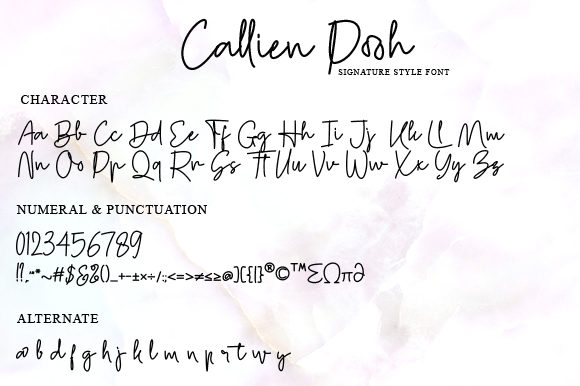 Callien Dooh
SIGNATURE STYLE FONT
CHARACTER
Aa Bb Cc Dd Ee Ff Gg Hh Ii Jj Kk Ll Mm
Nn Oo Pp Qq Rr Ss Tt Uu Vv Ww Xx Yy Zz
NUMERAL & PUNCTUATION
0123456789
!?,""*~#$&%()_+-±×÷/:;<=>≠≤≥@][{|}®©™∑Ωπ∂
ALTERNATE
a b d f g h j k l m n p r t w y